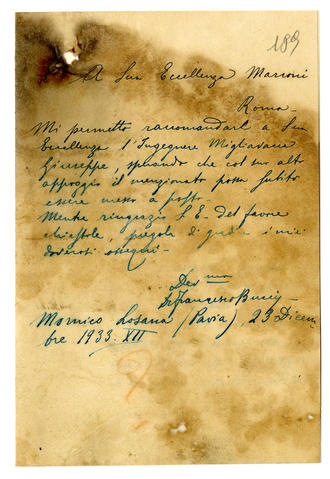 189
A Sua Eccellenza Marconi
Roma-
Mi permetto raccomandarl a Sua
Eccellenza l'Ingegnere Migliavacca
Giuseppe, sperando che col suo alto
appoggio il menzionato possa subito
essere messo a posto.-
Mentre ringrazio S. E. del favore
chiestole, pregola di gradi i miei
doverosi ossequi-
Dev mo
Dr Francesco Buccij
Mornico Losana (Pavia), 23 Dicem
bre 1933. XII